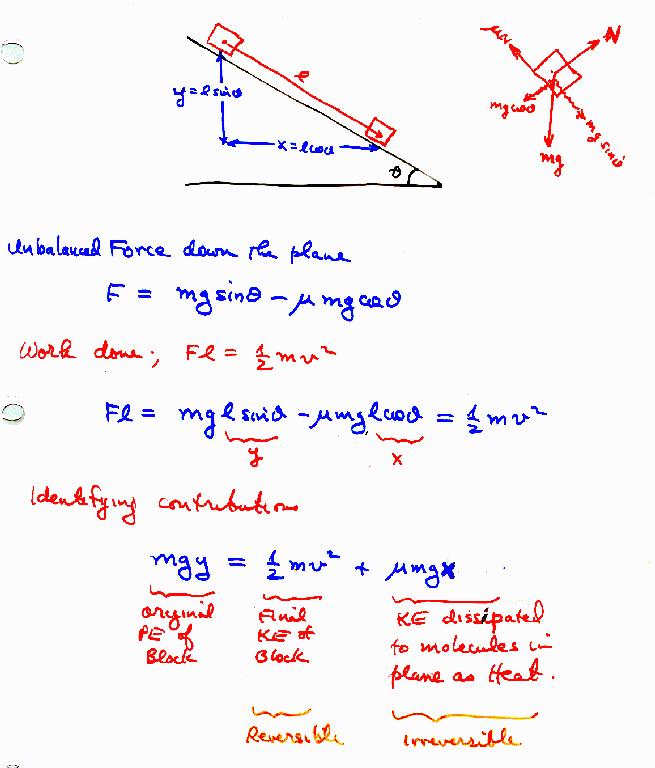 y = l sinθ
l
x = l cosθ
θ
μN
N
mg cosθ
mg sinθ
mg
Unbalanced Force down the plane
F = mg sinθ − μ mg cosθ
Work done; Fl = ½ mv²
Fl = mg l sinθ − μmg l cosθ = ½ mv²
y x
Identifying contributions
mgy = ½ mv² + μmgx
original Final KE dissipated
PE of KE of to molecules in
Block Block plane as Heat.
Reversible Irreversible